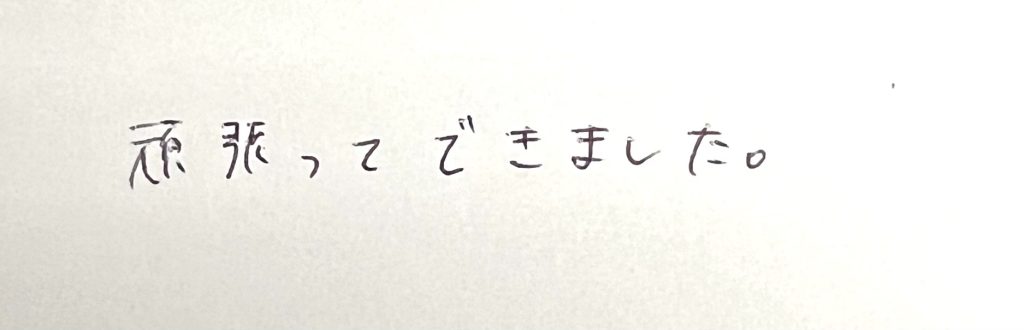 頑張ってできました。